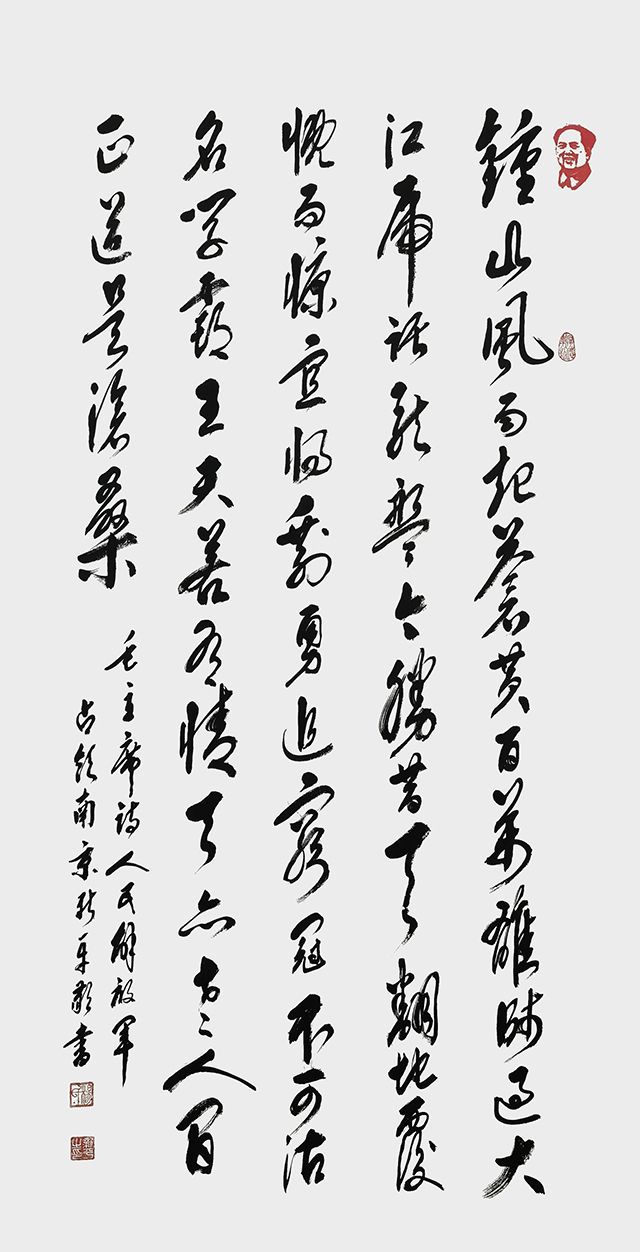 鍾山風雨起蒼黃百萬雄師過大
江虎踞龍盤今勝昔天翻地覆
慨而慷宜將剩勇追窮寇不可沽
名學霸王天若有情天亦老人間
正道是滄桑
毛主席詩人民解放軍
占領南京敬書